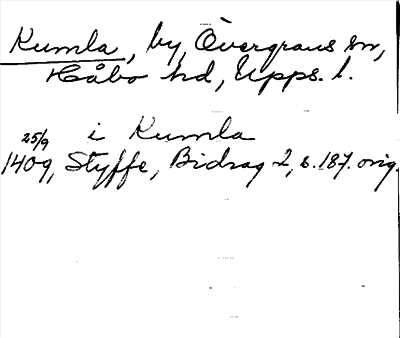 Kumla, by, Övergrans sn,
Håbo hd, Upps. l.
25/9 i Kumla
1409, Styffe, Bidrag 2, s. 187. orig.